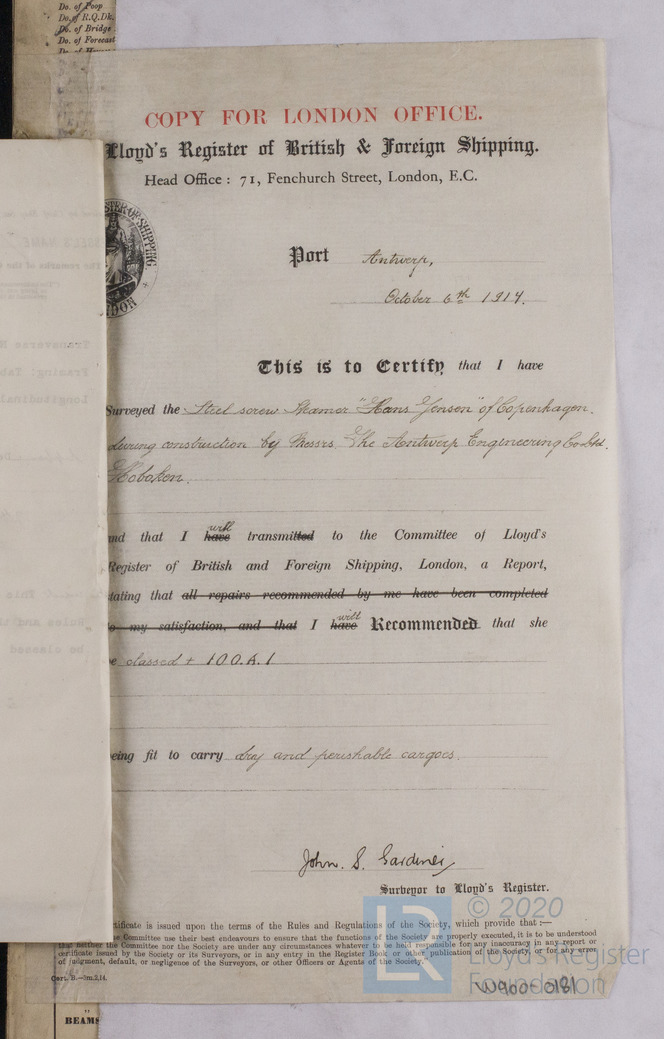 Do. of Poop
Do. of R.Q.Dk.
Do. of Bridge
Do. of Forecast
COPY FOR LONDON OFFICE.
Lloyd's Register of British & Foreign Shipping.
Head Office: 71, Fenchurch Street, London, E.C.
STER OF SHIPPING
Port Antwerp,
October 6th 1914.
This is to Certify that I have
Surveyed the Steel screw steamer "Hans Jensen" of Copenhagen.
during construction by Messrs. The Antwerp Engineering Co. Ltd.
Hoboken.
and that I have will transmitted to the Committee of Lloyd's
Register of British and Foreign Shipping, London, a Report,
stating that all repairs recommended by me have been completed
to my satisfaction, and that I have will Recommended that she
be classed + 100.A.1
being fit to carry dry and perishable cargoes.
John. S. Gardiner
Surveyor to Lloyd's Register.
rtificate is issued upon the terms of the Rules and Regulations of the Society, which provide that :—
e Committee use their best endeavours to ensure that the functions of the Society are properly executed, it is to be understood
that neither the Committee nor the Society are under any circumstances whatever to be held responsible for any inaccuracy in any report or
certificate issued by the Society or its Surveyors, or in any entry in the Register Book or other publication of the Society, or for any error
of judgment, default, or negligence of the Surveyors, or other Officers or Agents of the Society."
Cert. B.—3m.2,14.
© 2020
LR
Lloyd's Register
Foundation
W900-0181
BEAMS